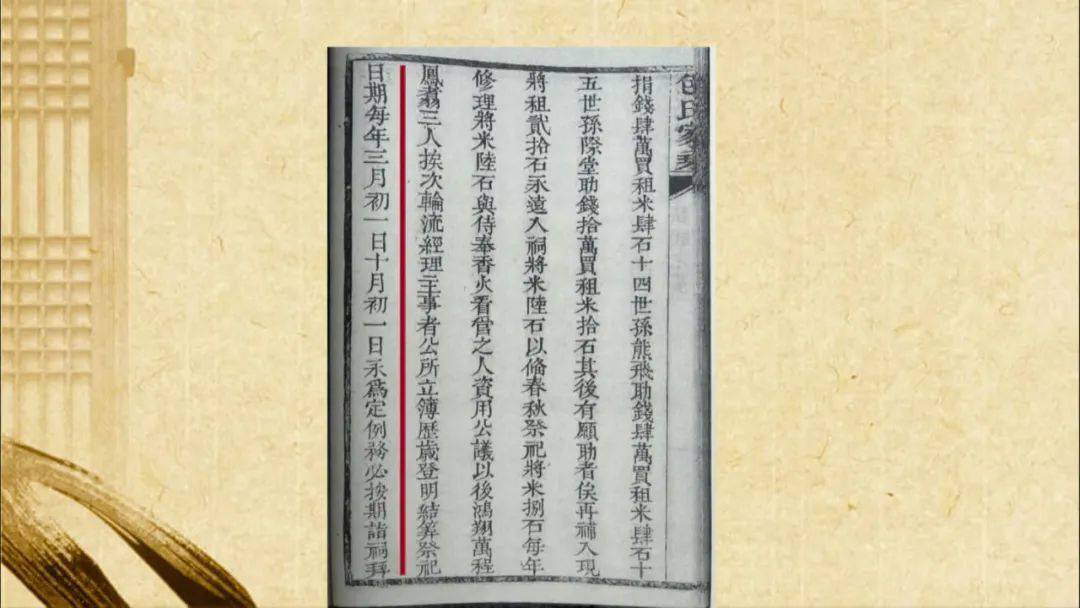 包氏家乘
捐錢肆萬買租米肆石十四世孫熊飛助錢肆萬買租米肆石十
五世孫際堂助錢拾萬買租米拾石其後有願助者俟再補入現
將租貳拾石永遠入祠將米陸石以備春秋祭祀將米捌石每年
修理將米陸石與侍奉香火看管之人資用公議以後鴻翔萬程
鳳翥三人挨次輪流經理主事者公所立簿歷歲登明結筭祭祀
日期每年三月初一日十月初一日永為定例務必按期詣祠拜